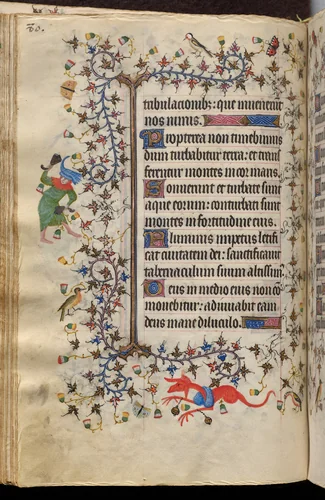 30.
tribulacionibz: que inuenerūt
nos nimis.
Propterea non timebimus
dum turbabitur terra: et trans
ferentur montes in cor maris.
Sonuerunt et turbate sunt
aque eorum: conturbati sunt
montes in fortitudine eius.
Fluminis impetus letifi
cat ciuitatem dei: sanctificauit
tabernaculum suum altissim9.
Deus in medio eius non cō
mouebitur: adiuuabit eam
deus mane diluculo.